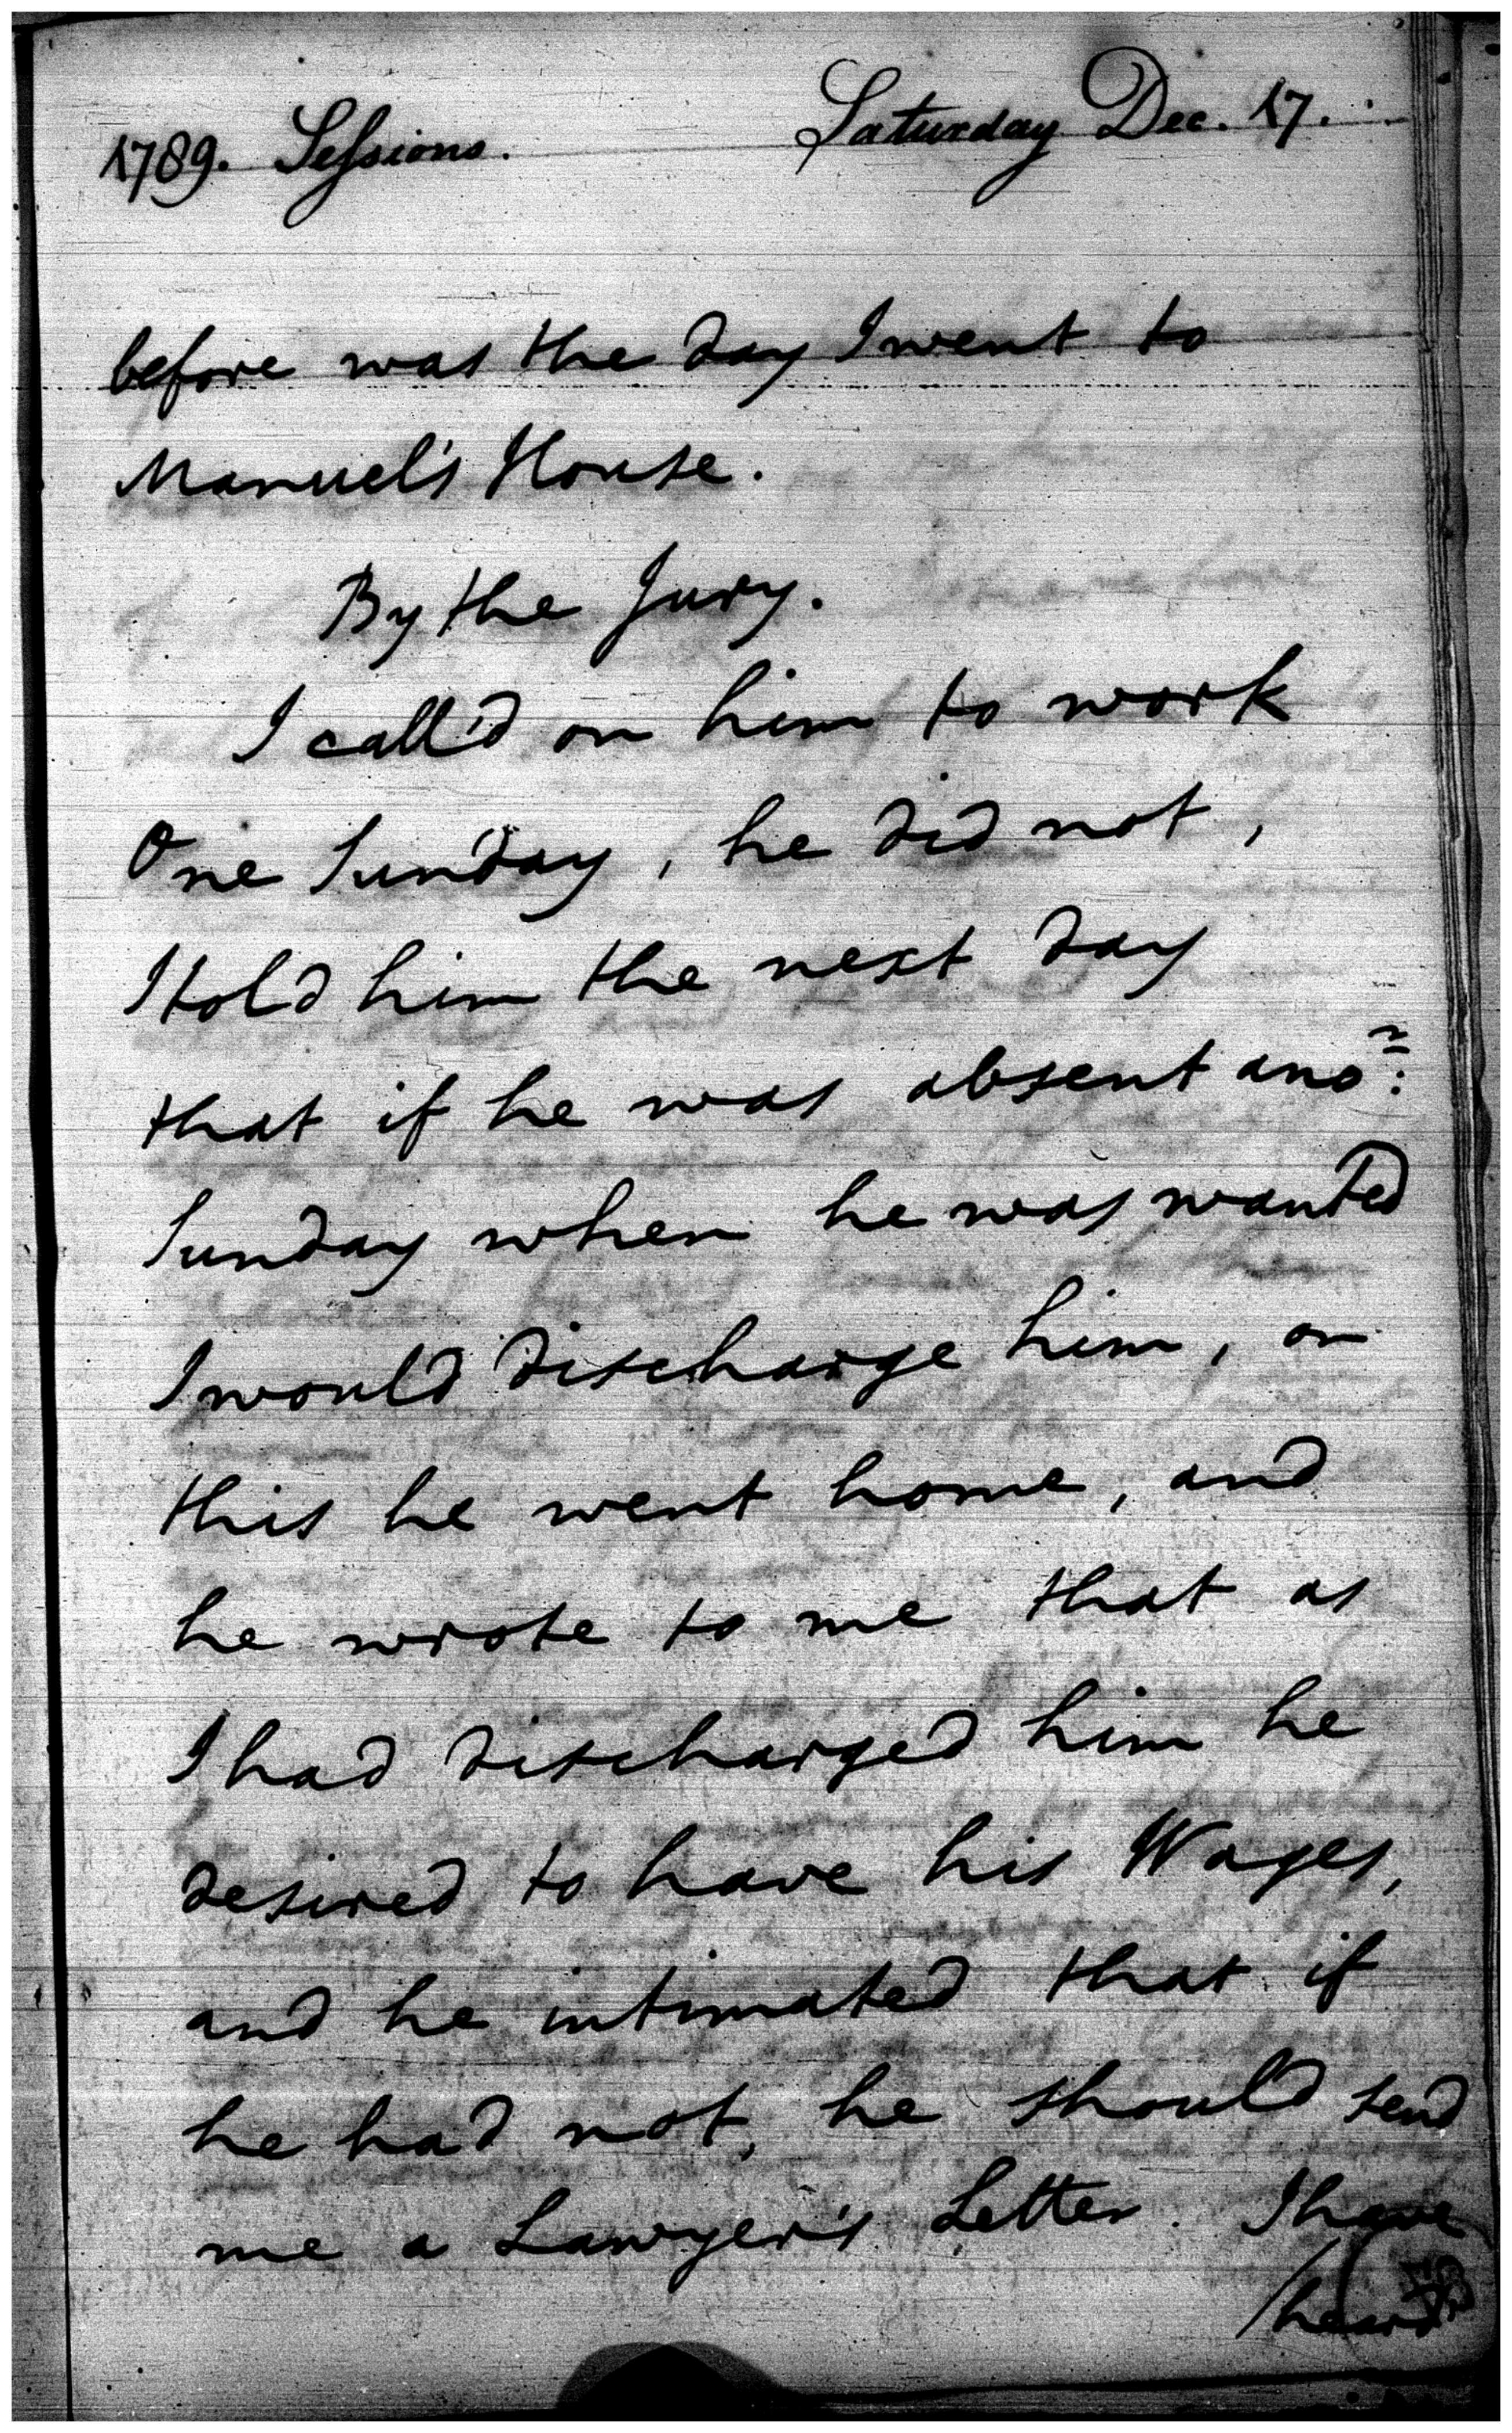 1789. Sessions. Saturday Dec. 17.
before was the day I went to
Manuel's House.
By the Jury.
I call'd on him to work
One Sunday, he did not,
I told him the next day
that if he was absent ano.r
Sunday when he was wanted
I would discharge him, on
this he went home, and
he wrote to me that as
I had discharged him he
desired to have his Wages,
and he intimated that if
he had not, he should send
me a Lawyer's Letter. I have
/heard